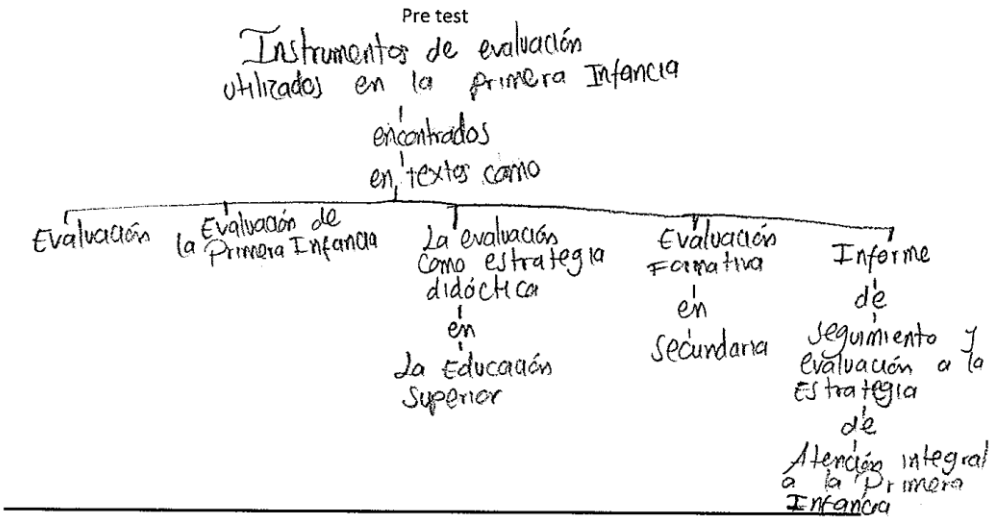 Pre test
Instrumentos de evaluación
utilizados en la primera Infancia
encontrados
en textos como
Evaluación
Evaluación de
la Primera Infancia
La evaluación
como estrategia
didáctica
en
La Educación
Superior
Evaluación
Formativa
en
secundaria
Informe
de
seguimiento y
evaluación a la
Estrategia
de
Atención integral
a la Primera
Infancia